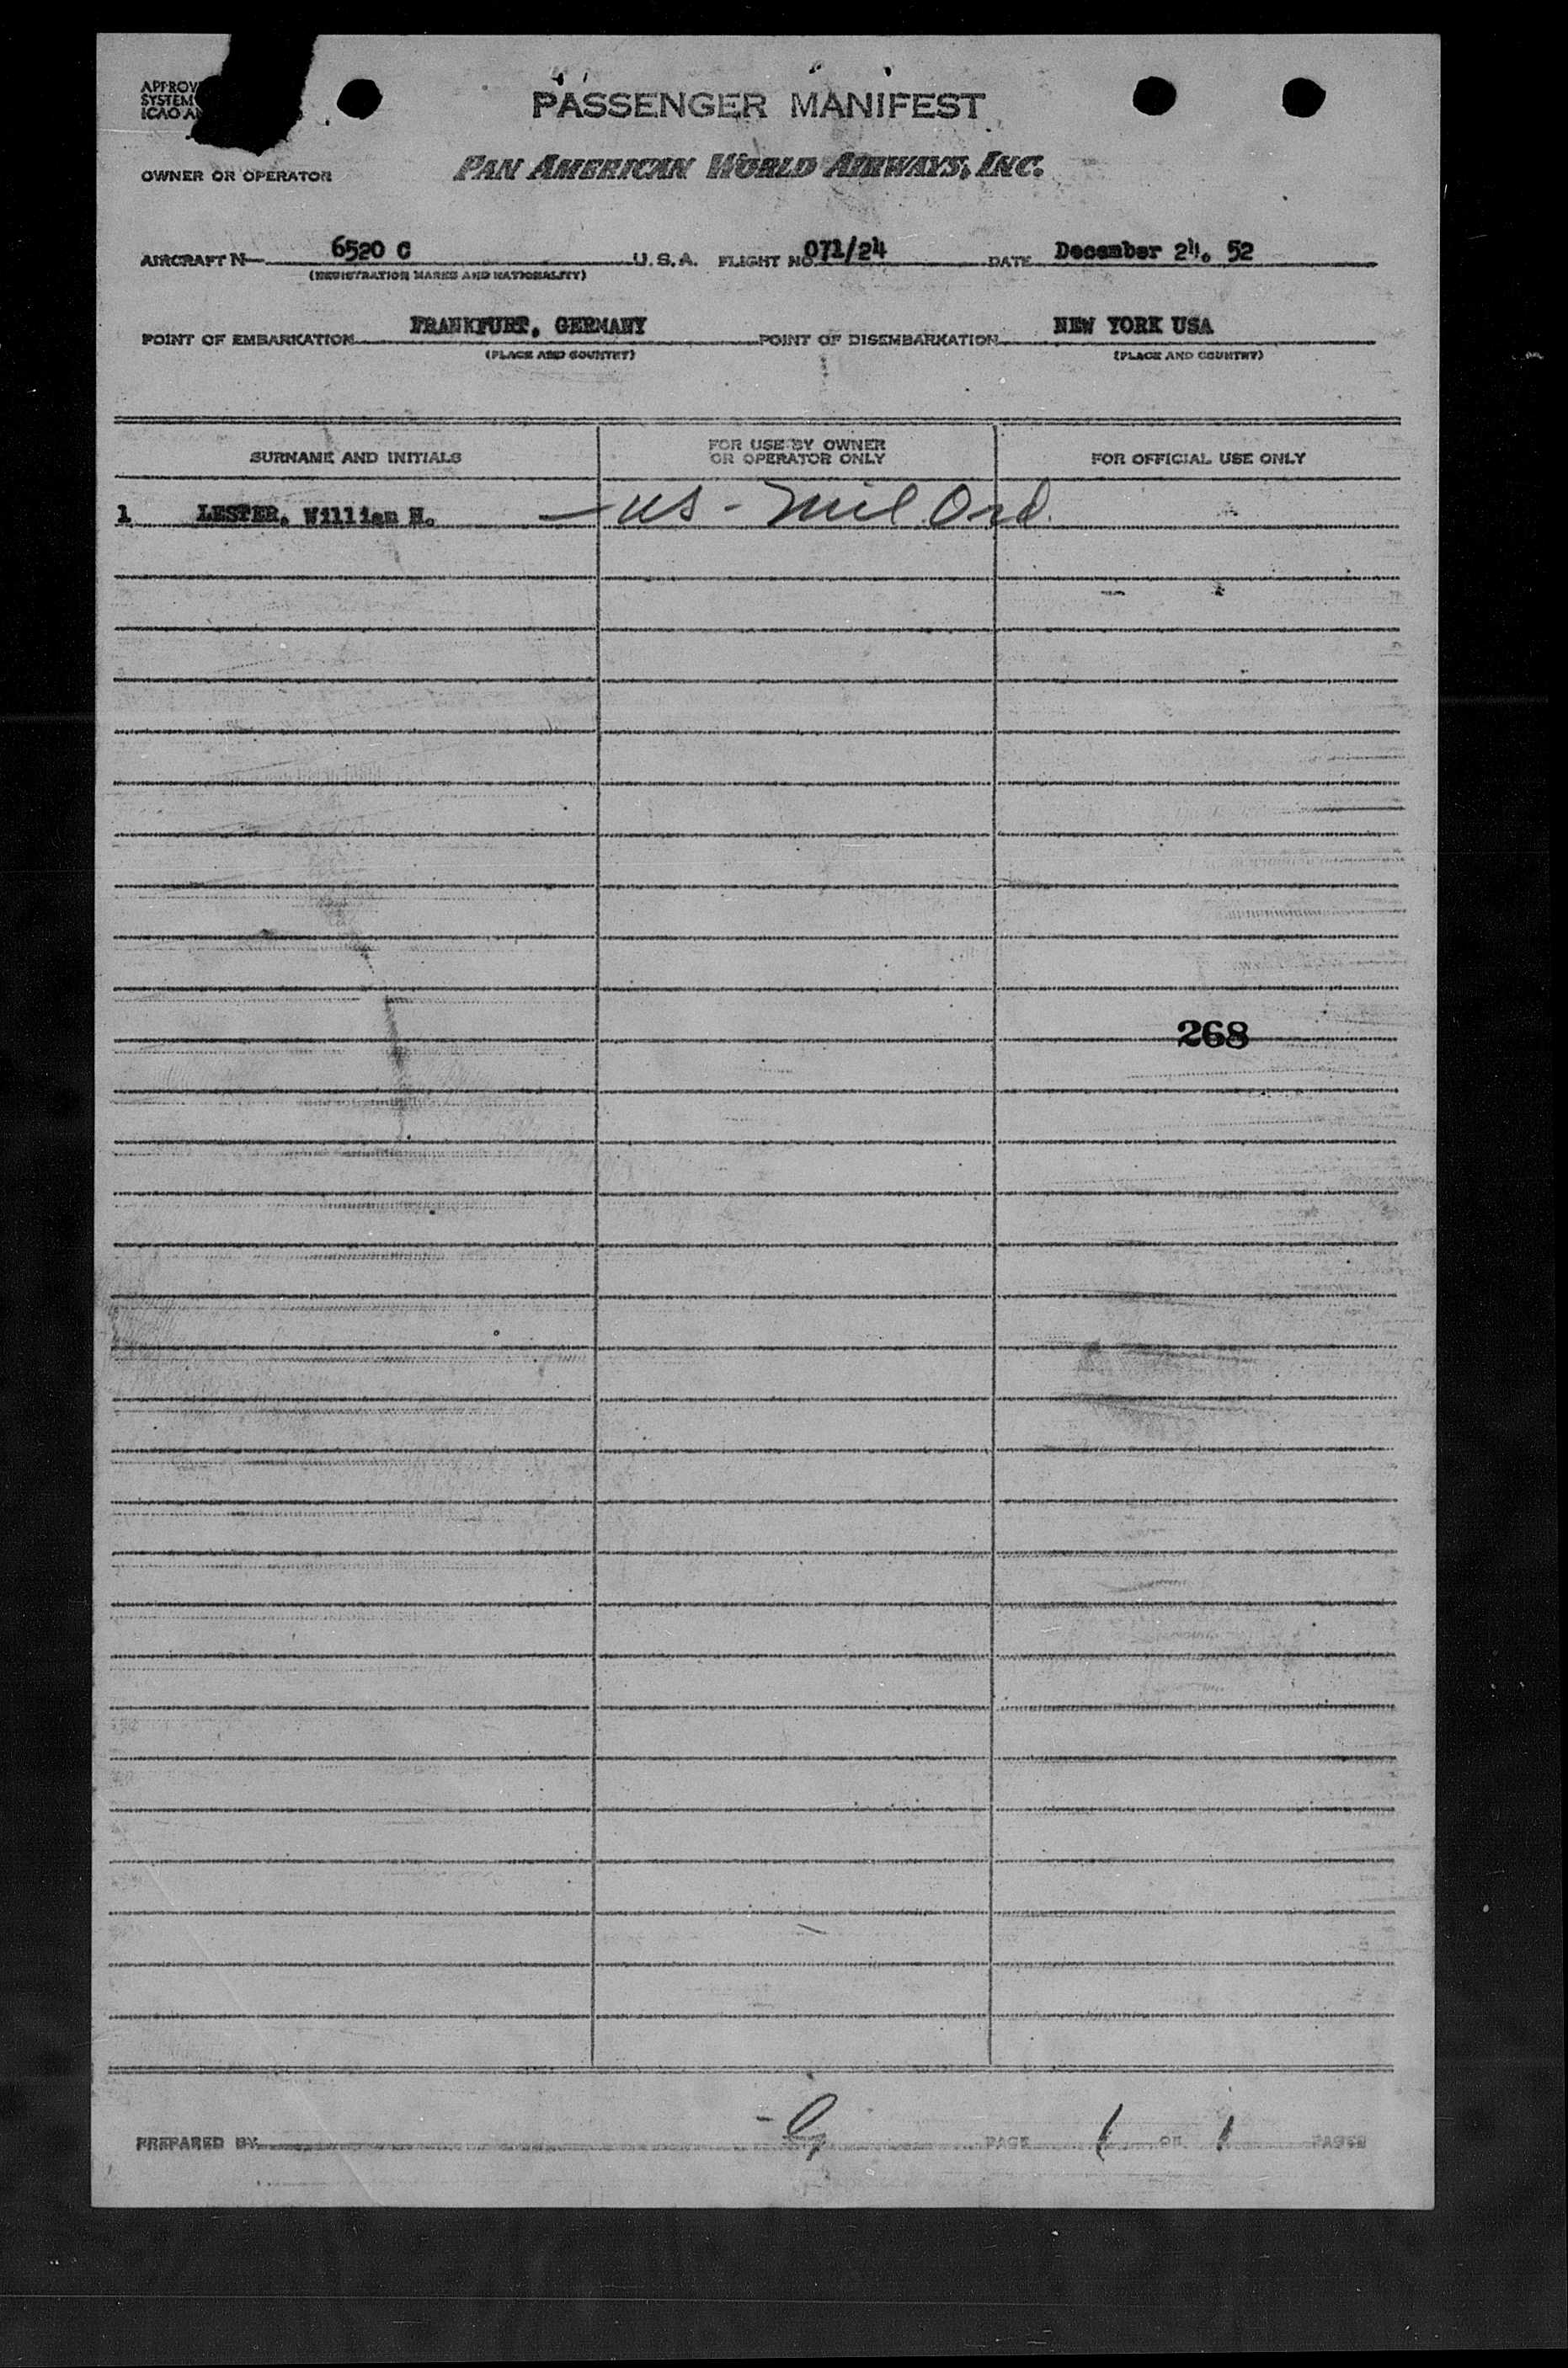 APPROV
SYSTEM
ICAO A
PASSENGER MANIFEST
OWNER OR OPERATOR PAN AMERICAN WORLD AIRWAYS, INC.
AIRCRAFT N— 6520 C U.S.A. FLIGHT NO 071/24 DATE December 24. 52
(REGISTRATION MARKS AND NATIONALITY)
POINT OF EMBARKATION FRANKFURT, GERMANY POINT OF DISEMBARKATION NEW YORK USA
(PLACE AND COUNTRY) (PLACE AND COUNTRY)
SURNAME AND INITIALS FOR USE BY OWNER OR OPERATOR ONLY FOR OFFICIAL USE ONLY
1 LESTER, William H. — US - Mil Ord
268
PREPARED BY PAGE 1 OF 1 PAGES